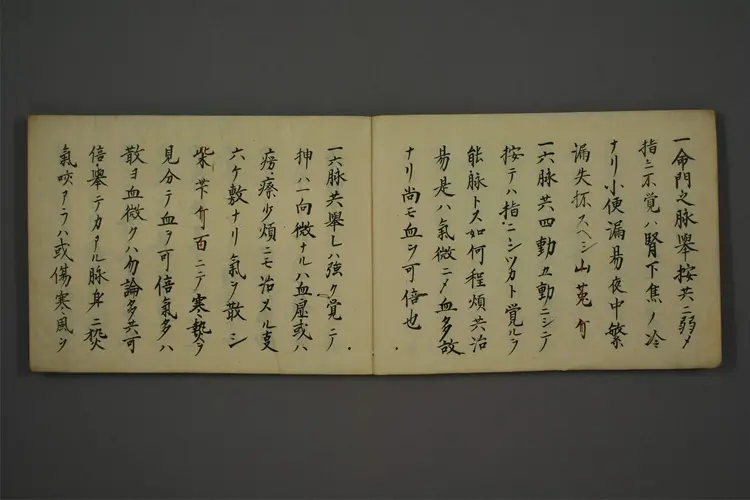 一命門之脉擧按共ニ弱メ
指ニ不覚ハ腎下焦ノ冷
ナリ小便漏易夜中繁
漏失抔スヘシ山茱介
一六脉共四動五動ニシテ
按テハ指ニシツカト覚ルヲ
能脉トス如何程煩共治
易是ハ氣微ニメ血多故
ナリ尚モ血ヲ可倍也
一六脉共擧レハ強ク覚ニテ
押ハ一向微ナルハ血虚或ハ
癆瘵少煩ニモ治ヌル支
六ケ敷ナリ氣ヲ散シ
柴芐介百ニテ寒熱ヲ
見分テ血ヲ可倍氣多ハ
散ヨ血微クハ勿論多共可
倍擧テカタル脉身ニ熱
氣咳ヲラハ或傷寒風シ